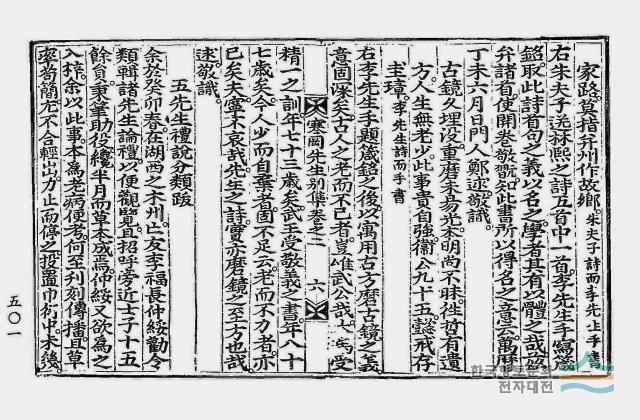 家路莫指幷州作故鄕 朱夫子詩而李先生手書
右朱夫子送林熙之詩五首中一首李先生手寫箴
銘取此詩首句之義以名之學者其有以體之哉故
幷諸首使開卷敬翫知此書所以得名之意云萬曆
丁未六月日門人鄭逑敬識
古鏡久埋沒重磨未易光本明尚不昧往哲有遺
方人生無老少此事貴自強衞公九十五懿戒存
圭璋 李先生詩而手書
右李先生手題箴銘之後以寓用古方磨古鏡之義
意固深矣古人之老而不已者豈惟武公哉
受
寒岡先生別集卷之二 六
精一之訓年七十三歲矣武王受敬義之書年八十
七歲矣今人少而自棄者固不足云老而不力者亦
已矣夫寧不哀哉先生之詩實亦磨鏡之至方也哉
逑敬識
五先生禮說分類跋
余於癸卯春在湖西之木州亡友李福長仲綏勸令
類輯諸先生論禮以便觀覽且招呼旁近士子十五
餘員秉筆助役纔半月而草本成焉仲綏又欲爲之
入梓余以此事本爲老病便考何至刊刻傳播且草
率苟簡尤不合輕出力止而停之投置巾衍中未後
五〇一
한국고전번역원
전자대전